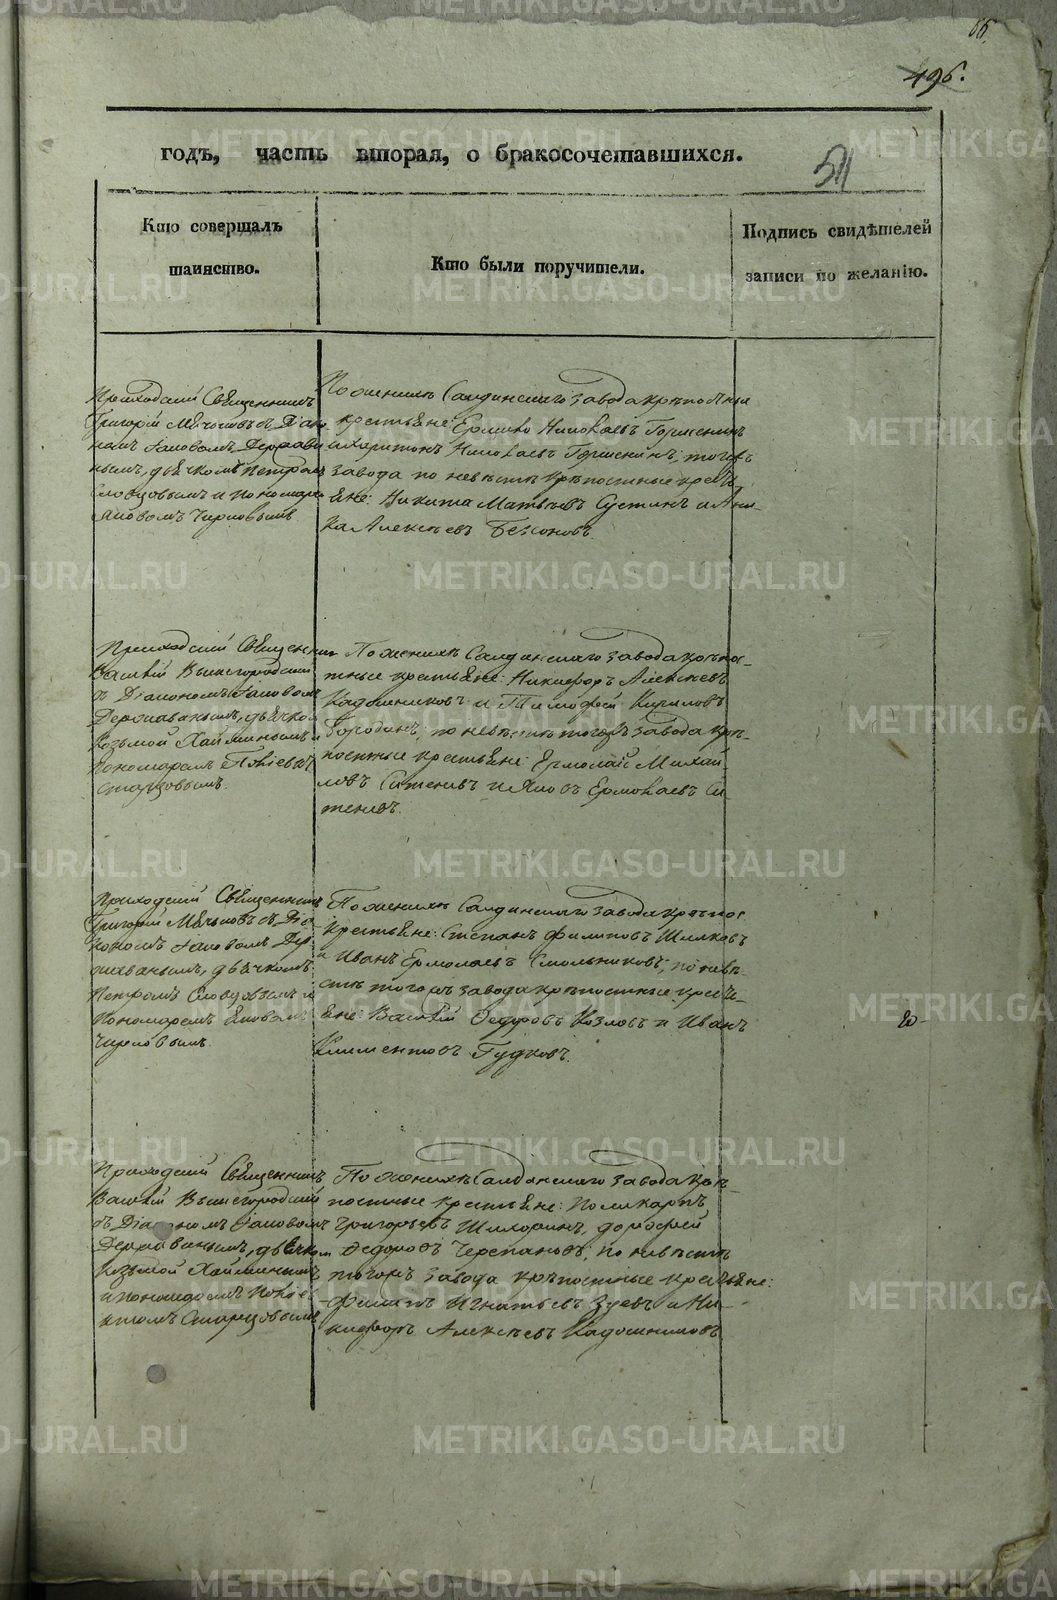 496.
годъ, часть вторая, о бракосочетавшихся.
511
Кто совершалъ
таинство.
Кто были поручители.
Подпись свидѣтелей
записи по желанію.
Приходскій Священникъ
Григорій
Діако
номъ Іаковомъ Держави
нымъ, дьячкомъ Петромъ
Словцовымъ и пономаре
Яковомъ
По женихѣ Салдинскаго завода крѣпостные
крестьяне: Ермило Николаевъ Горшенинъ
и Харитонъ Николаевъ Горшенинъ; тогожъ
завода по невѣстѣ крѣпостные кресть
яне: Никита Матвѣевъ Сустинъ и Ани
ка Алексѣевъ Безсоновъ.
Приходскій Священникъ
Василій Вышегородскій
съ Діакономъ Іаковомъ
Державинымъ, дьячкомъ
Козьмой Хайминымъ и
Пономаремъ
Старцовымъ.
По женихѣ Салдинскаго завода крѣпос-
тные крестьяне: Никифоръ Алексѣевъ
Кадошниковъ и Тимофей Кириловъ
Бородинъ; по невѣстѣ тогожъ завода крѣ-
постные крестьяне: Ермолай Михай-
ловъ Ситенивъ и Яковъ Ермолаевъ Си-
теневъ.
Приходскій Священникъ
Григорій
съ Діа
кономъ Іаковомъ Дер
жавинымъ, дьячкомъ
Петромъ Словцовымъ и
Пономаремъ Яковомъ
По женихѣ Салдинскаго завода крѣпос
крестьяне: Степанъ Филиповъ Шилковъ
и Иванъ Ермолаевъ Смольниковъ; по невѣ-
стѣ тогожъ завода крѣпостные кресть-
яне: Василій Федоровъ Козловъ и Иванъ
Климентовъ Гудковъ.
Приходскій Священникъ
Василій Вышегородскій
съ Діакономъ Іаковомъ
Державинымъ, дьячком
Козьмой Хайминымъ
и пономаремъ
Старцовымъ
По женихѣ Салдинскаго завода крѣ-
постные крестьяне: Поликарпъ
Григорьевъ Шихоринъ, дорофей
Федоровъ Черепановъ; по невѣстѣ
тогожъ завода крѣпостные крестьяне:
Филипъ Игнатьевъ Зуевъ и Ни-
кифоръ Алексѣевъ Кадошниковъ
METRIKI.GASO-URAL.RU